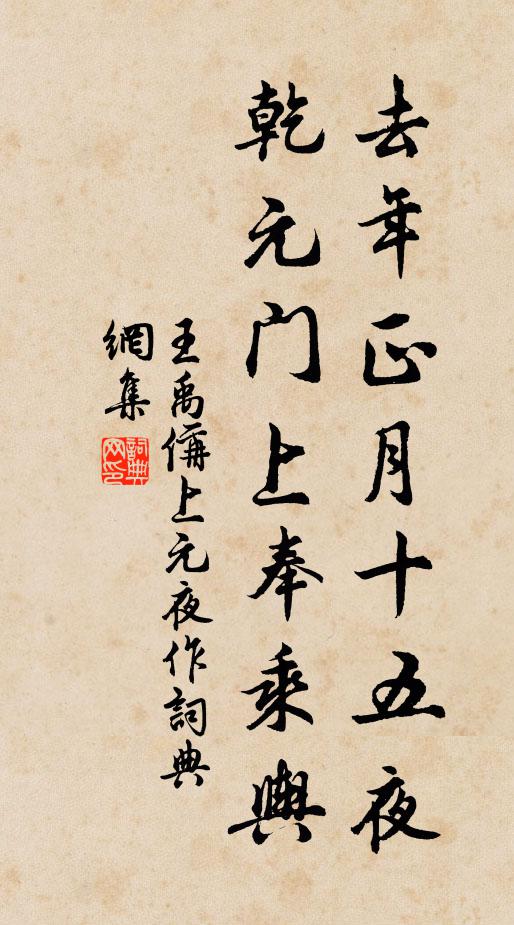 去年正月十五夜
乾元门上奉乘輿
王禹偁上元夜作詞典
網集
詞典
网印